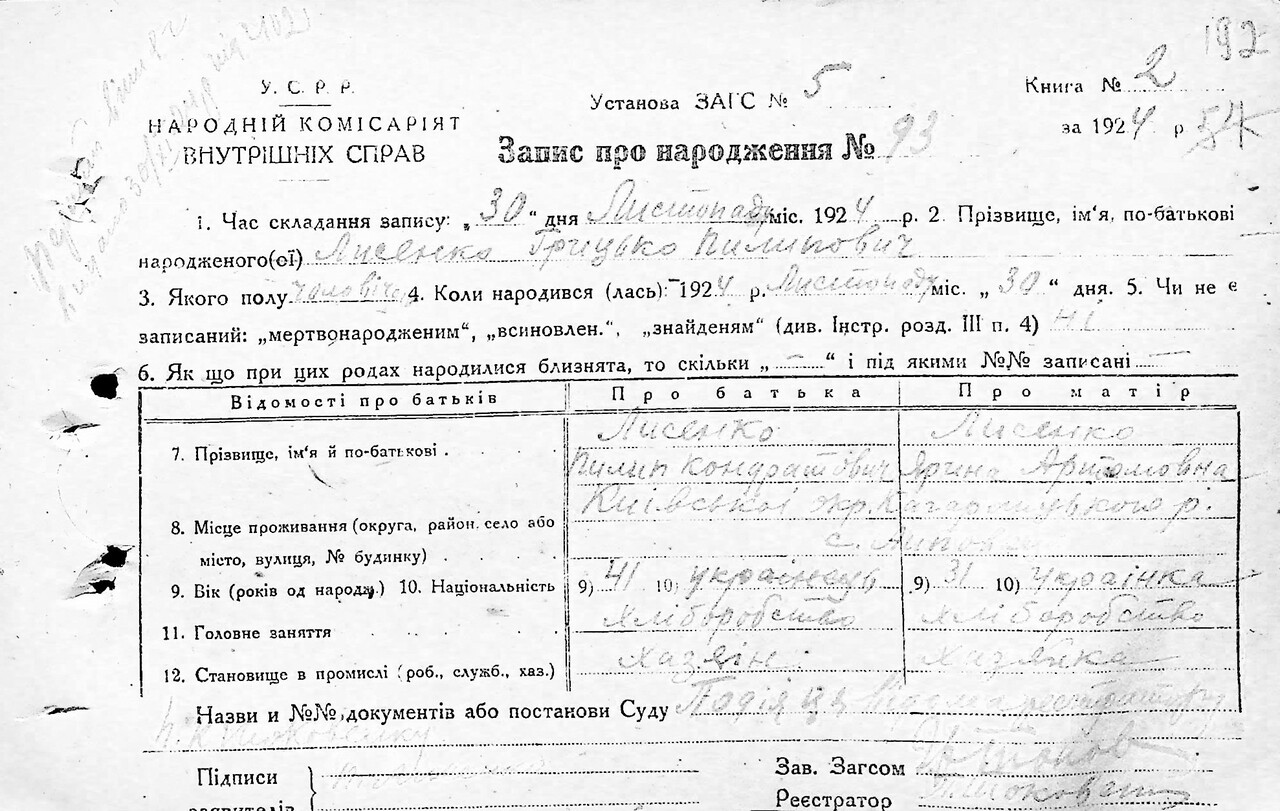 192
У. С. Р. Р.
НАРОДНІЙ КОМІСАРІЯТ
ВНУТРІШНІХ СПРАВ
Установа ЗАГС № 5
Запис про народження № 93
Книга № 2
за 1924 р 54
1. Час складання запису: „30“ дня Листопада міс. 1924 р. 2. Прізвище, ім'я, по-батькові
народженого(ої) Лисенко Грицько Пилипович
3. Якого полу чоловіч. 4. Коли народився (лась): 1924 р. Листопаду міс. „30“ дня. 5. Чи не є
записаний: „мертвонародженим“, „всиновлен.“, „знайденям“ (див. Інстр. розд. III п. 4) ні
6. Як що при цих родах народилися близнята, то скільки „—“ і під якими №№ записані —
Відомості про батьків Про батька Про матір
7. Прізвище, ім'я й по-батькові . Лисенко Лисенко
Пилип Кондратович Ярина Артомовна
8. Місце проживання (округа, район, село або Київської окр. Кагарлицького р.
місто, вулиця, № будинку) с.
9. Вік (років од народж.) 10. Національність 9) 41 10) українець 9) 31 10) українка
11. Головне заняття Хліборобство Хліборобство
12. Становище в промислі (роб., служб., хаз.) Хазяїн Хазяйка
Назви и №№ документів або постанови Суду
Підписи
заявителів
Зав. Загсом
Реєстратор